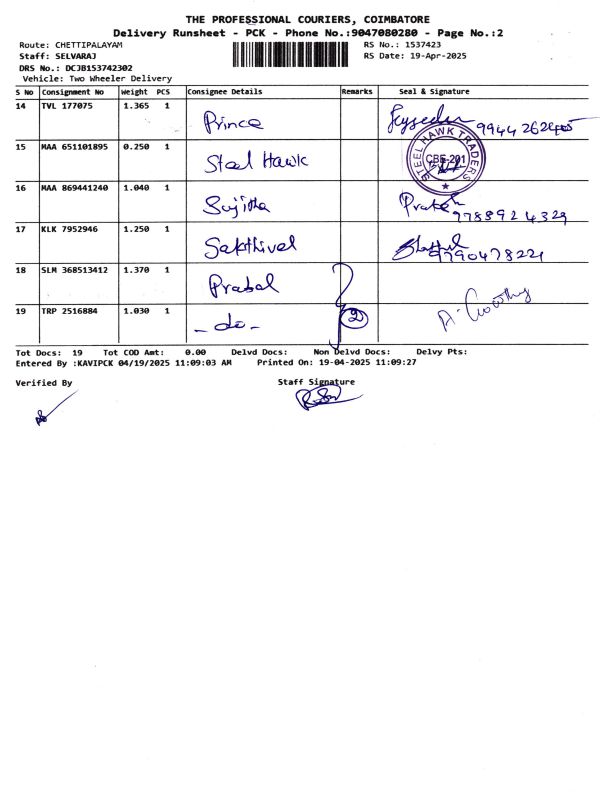 THE PROFESSIONAL COURIERS, COIMBATORE
Delivery Runsheet - PCK - Phone No.:9047080280 - Page No.:2
Route: CHETTIPALAYAM RS No.: 1537423
Staff: SELVARAJ RS Date: 19-Apr-2025
DRS No.: DCJB153742302
Vehicle: Two Wheeler Delivery
S No Consignment No Weight PCS Consignee Details Remarks Seal & Signature
14 TVL 177075 1.365 1 Prince
15 MAA 651101895 0.250 1 Steel Hawk STEEL HAWK TRADERS CBE-201
16 MAA 869441240 1.040 1 Sujitha Prakash 9788924329
17 KLK 7952946 1.250 1 Sakthivel 9790478221
18 SLM 368513412 1.370 1 Prabal
19 TRP 2516884 1.030 1 - do - 2
Tot Docs: 19 Tot COD Amt: 0.00 Delvd Docs: Non Delvd Docs: Delvy Pts:
Entered By :KAVIPCK 04/19/2025 11:09:03 AM Printed On: 19-04-2025 11:09:27
Verified By Staff Signature